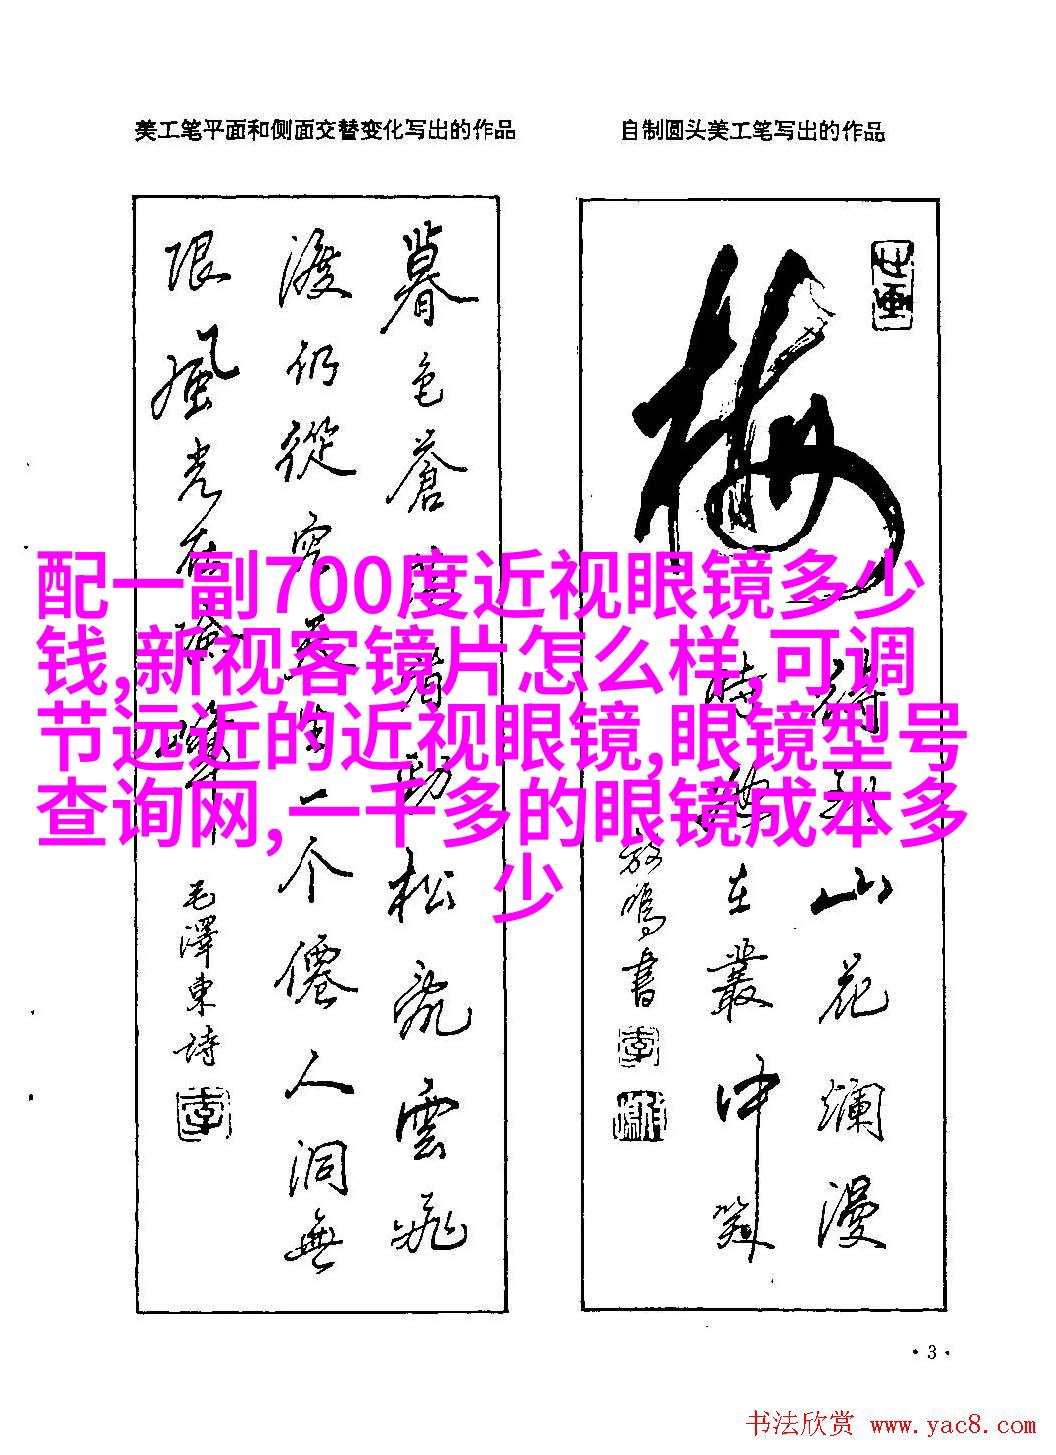 美工笔平面和侧面交替变化写出的作品
自制圆头美工笔写出的作品
配一副700度近视眼镜多少
钱,新视客镜片怎么样,可调
节远近的近视眼镜,眼镜型号
查询网,一千多的眼镜成本多
少
暮色蒼 看劲松亂雲飛
渡仍從容 一个僊人洞無
限風光在險峰
毛澤東詩
梅
待到山花爛漫
時她在叢中笑
放鳴書
·3·
书法欣赏 www.yac8.com